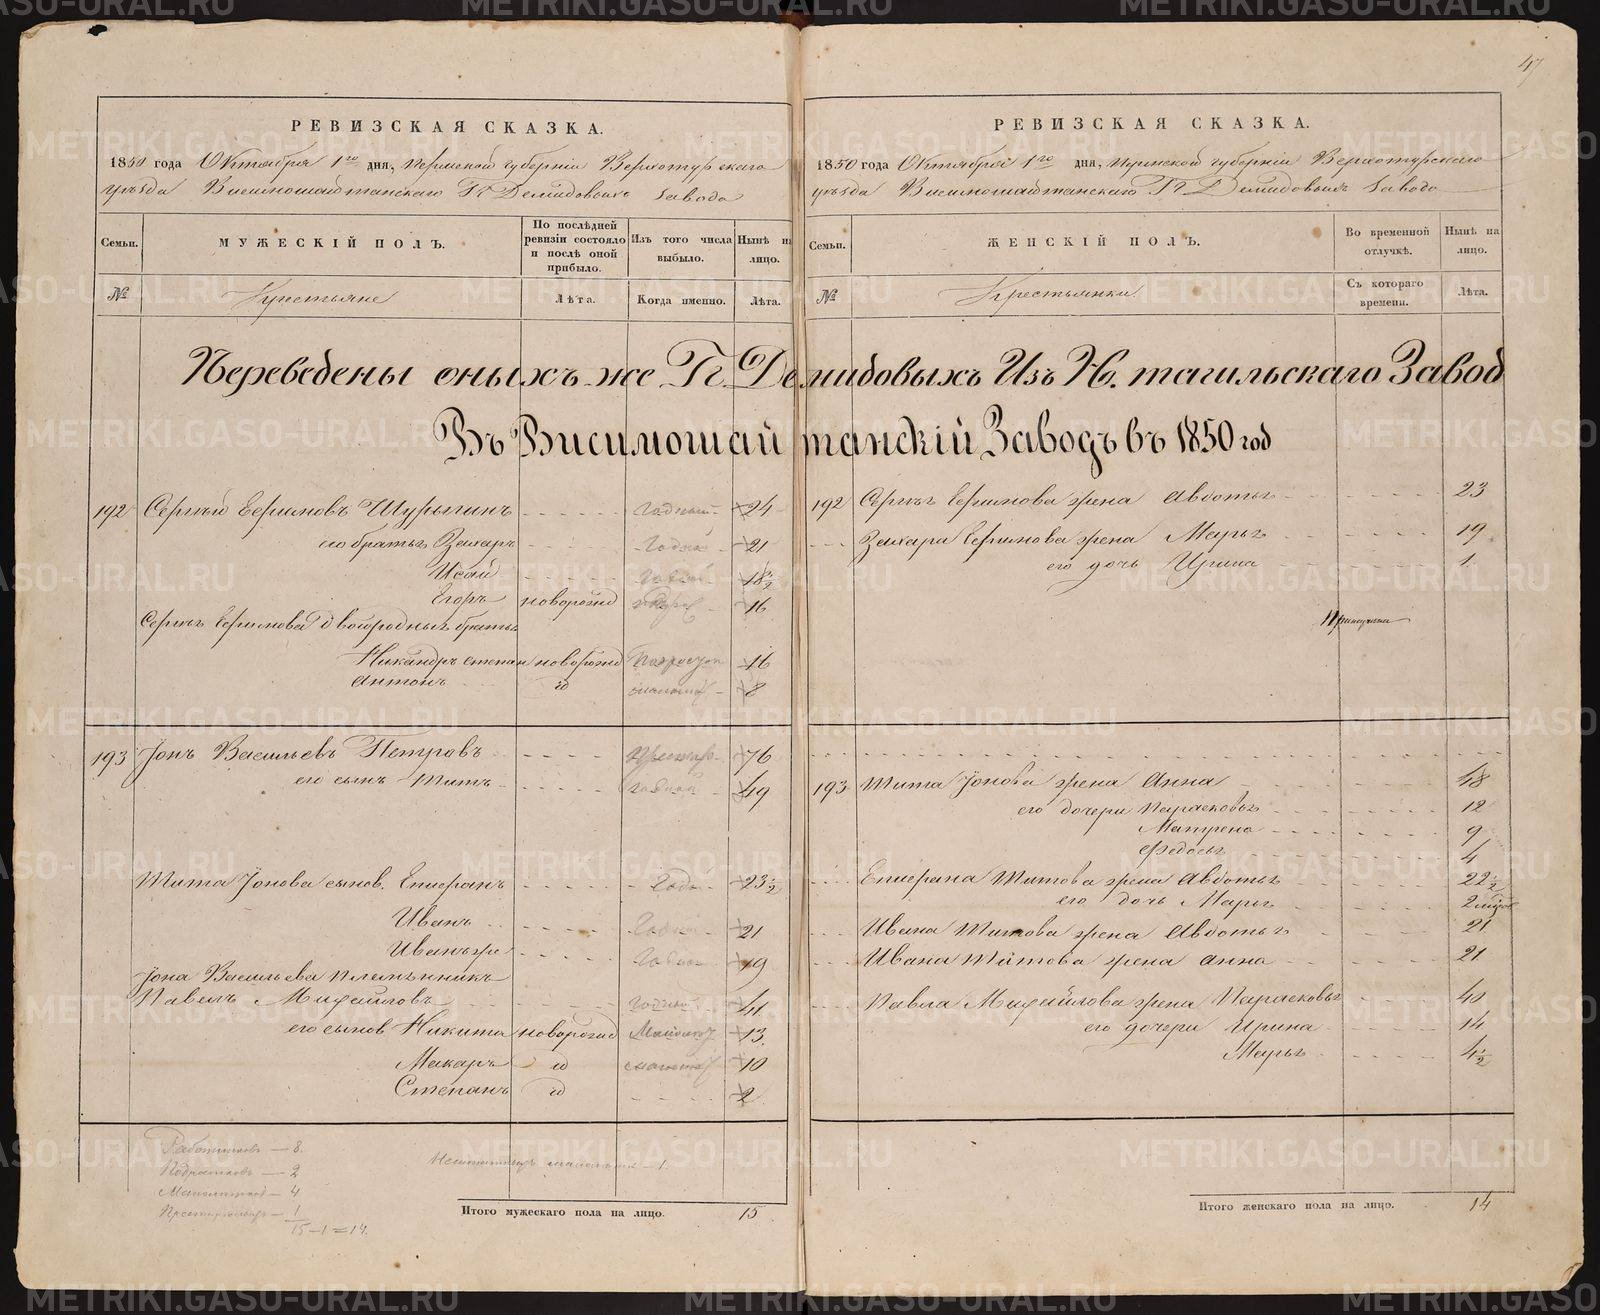 47
РЕВИЗСКАЯ СКАЗКА.
1850 года Октября 1го дня, Пермской губерніи Верхотурскаго
уѣзда Висимошайтанскаго Гг Демидовыхъ Завода
Семьи. МУЖЕСКІЙ ПОЛЪ. По послѣдней ревизіи состояло и послѣ оной прибыло. Изъ того числа выбыло. Нынѣ на лицо.
№ Крестьяне Лѣта. Когда именно. Лѣта.
РЕВИЗСКАЯ СКАЗКА.
1850 года Октября 1го дня, Пермской губерніи Верхотурскаго
уѣзда Висимошайтанскаго Гг Демидовыхъ Завода
Семьи. ЖЕНСКІЙ ПОЛЪ. Во временной отлучкѣ. Нынѣ на лицо.
№ Крестьянки Съ котораго времени. Лѣта.
Переведены оныхъ же Гг. Демидовыхъ Изъ Н. тагильскаго Завод
Въ Висимошайтанскій Заводъ въ 1850 год
192 Сергѣй Ефимовъ Шурыгинъ Годный 24
его братья Захаръ Годный 21
Исай Годный 18½
Егоръ новорожд 16
Сергѣя Ефимова двоюродныя братья
Никандръ степан новорожд Подросток 16
Антонъ id 8
193 Іонъ Васильевъ Петровъ 76
его сынъ Титъ годной 49
Тита Іонова сынов. Епифанъ Годн 23½
Иванъ Годной 21
Иванъ же Годной 19
Іона Васильева племянникъ
Павелъ Михайловъ Годный 41
его сынов Никита новорожд 13
Макаръ id 10
Степанъ id 2
Работников — 8.
Подростков — 2
Малолетков — 4
Престарелых — 1
15 – 1 = 14.
Итого мужескаго пола на лицо. 15
192 Сергѣя Ефимова жена Авдотья 23
Захара Ефимова жена Марья 19
его дочь Ирина 1
193 Тита Іонова жена Анна 48
его дочери Парасковья 12
Матрена 9
Федосья 4
Епифана Титова жена Авдотья 22½
его дочь Марья 2
Ивана Титова жена Авдотья 21
Ивана Титова жена Анна 21
Павла Михайлова жена Парасковья 40
его дочери Ирина 14
Марья 4½
Итого женскаго пола на лицо. 14
METRIKI.GASO-URAL.RU